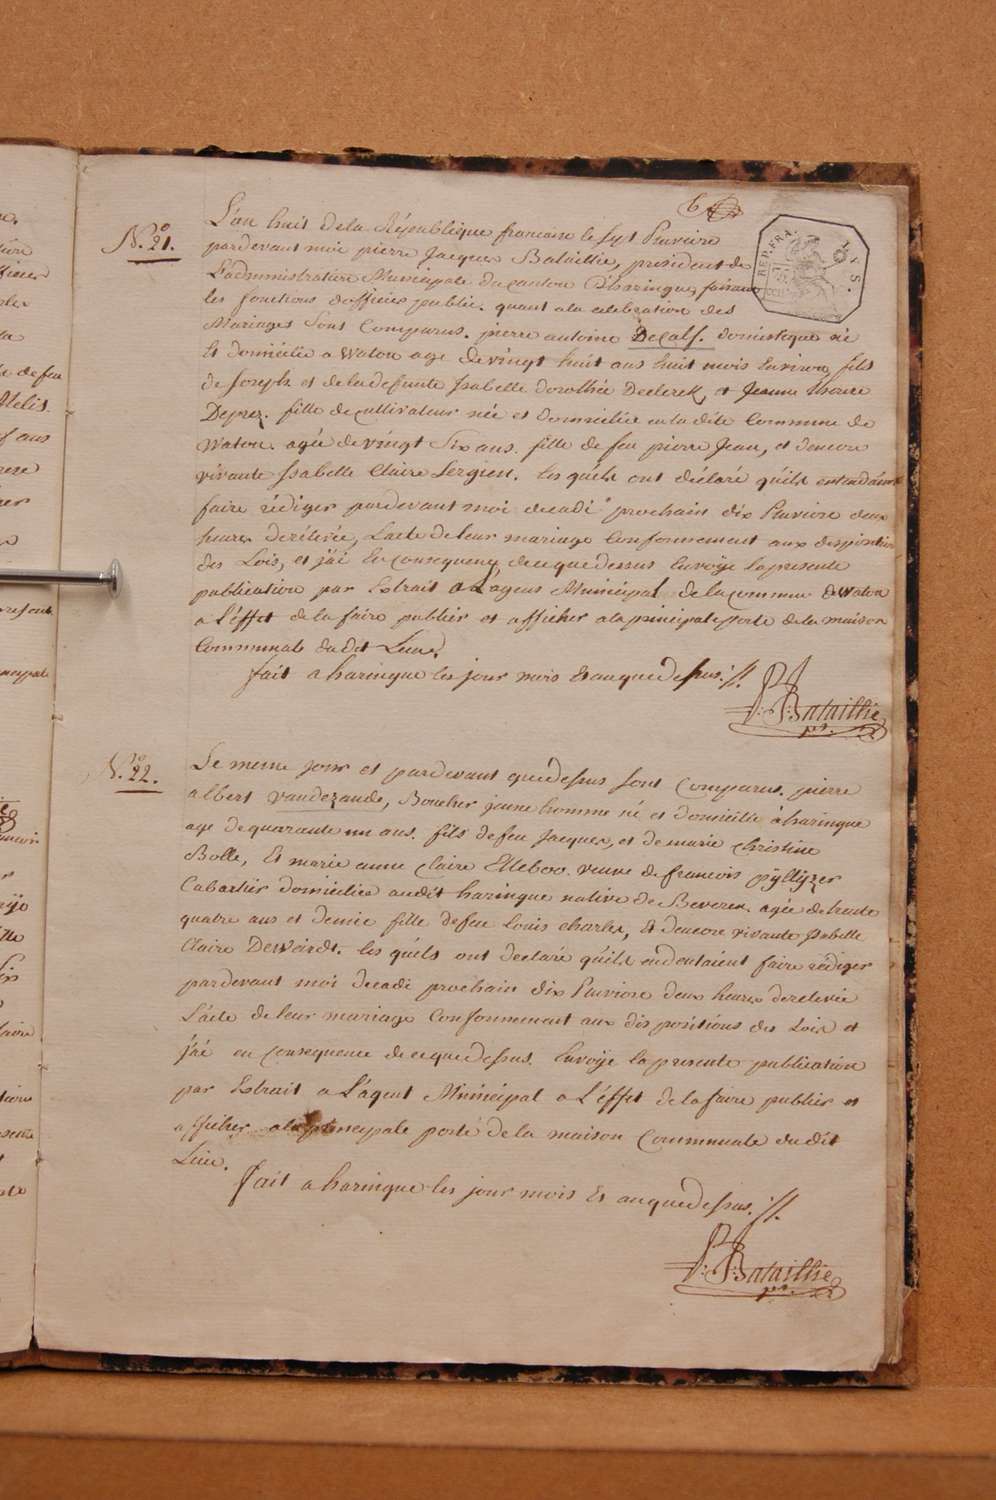 6
REP. FRA.
N.º 21.
L'an huit de la République francaise le sept Pluviose
pardevant moi pierre Jacques Bataillie, president de
L'administration Municipale du canton d'haringue, faisant
les fonctions d'officier public. quant a la celebration des
Mariages sont Comparus. pierre antoine Decalf. domestique né
Et domicilié a Watou age de vingt huit ans huit mois Environ, fils
de Joseph et de la defunte Isabelle dorothée Declerck, et Jeanne therese
Deprez. fille de cultivateur née et domiciliée en la dite Commune de
Watou. agée de vingt Six ans. fille de feu pierre Jean, et d'encore
vivante Isabelle Claire Sergien. les quéls ont déclaré qu'ils entendaient
faire rédiger pardevant moi decadi prochain dix Pluviose deux
heures de relévée, L'acte de leur mariage Conformement aux dispositions
des Lois, et j'ai En consequence de ce que dessus Envoyé la presente
publication par Extrait a L'agent Municipal de la commune de Watou
a L'éffet de la faire publier et afficher a la principale porte de la maison
Communale du dit Lieu.
fait a haringue les jour mois Et an que dessus ://.
P: J: Bataillie
pt.
N.º 22.
Le meme jour et pardevant que dessus sont Comparus. pierre
albert vandezande, Boucher jeune homme né et domicilié à haringue
age de quarante un ans. fils de feu Jacques, et de marie Christine
Bolle, Et marie anne Claire Elleboo. veuve de francois pÿllÿzer
Cabartier domiciliée audit haringue native de Beveren. agée de trente
quatre ans et demie fille de feu louis charles, Et d'encore vivante Isabelle
Claire Deweirdt. les quéls ont declaré qu'ils endentaient faire rédiger
pardevant moi decadi prochain dix Pluviose deux heures de relevée
L'acte de leur mariage Conformement aux dispositions des Lois et
j'ai en consequence de ce que dessus. Envoÿé la presente publication
par Extrait a L'agent Municipal a L'éffet de la faire publier et
afficher a la principale porte de la maison Communale du dit
Lieu.
fait a haringue les jour mois Et an que dessus. ://.
P: J: Bataillie
pt.